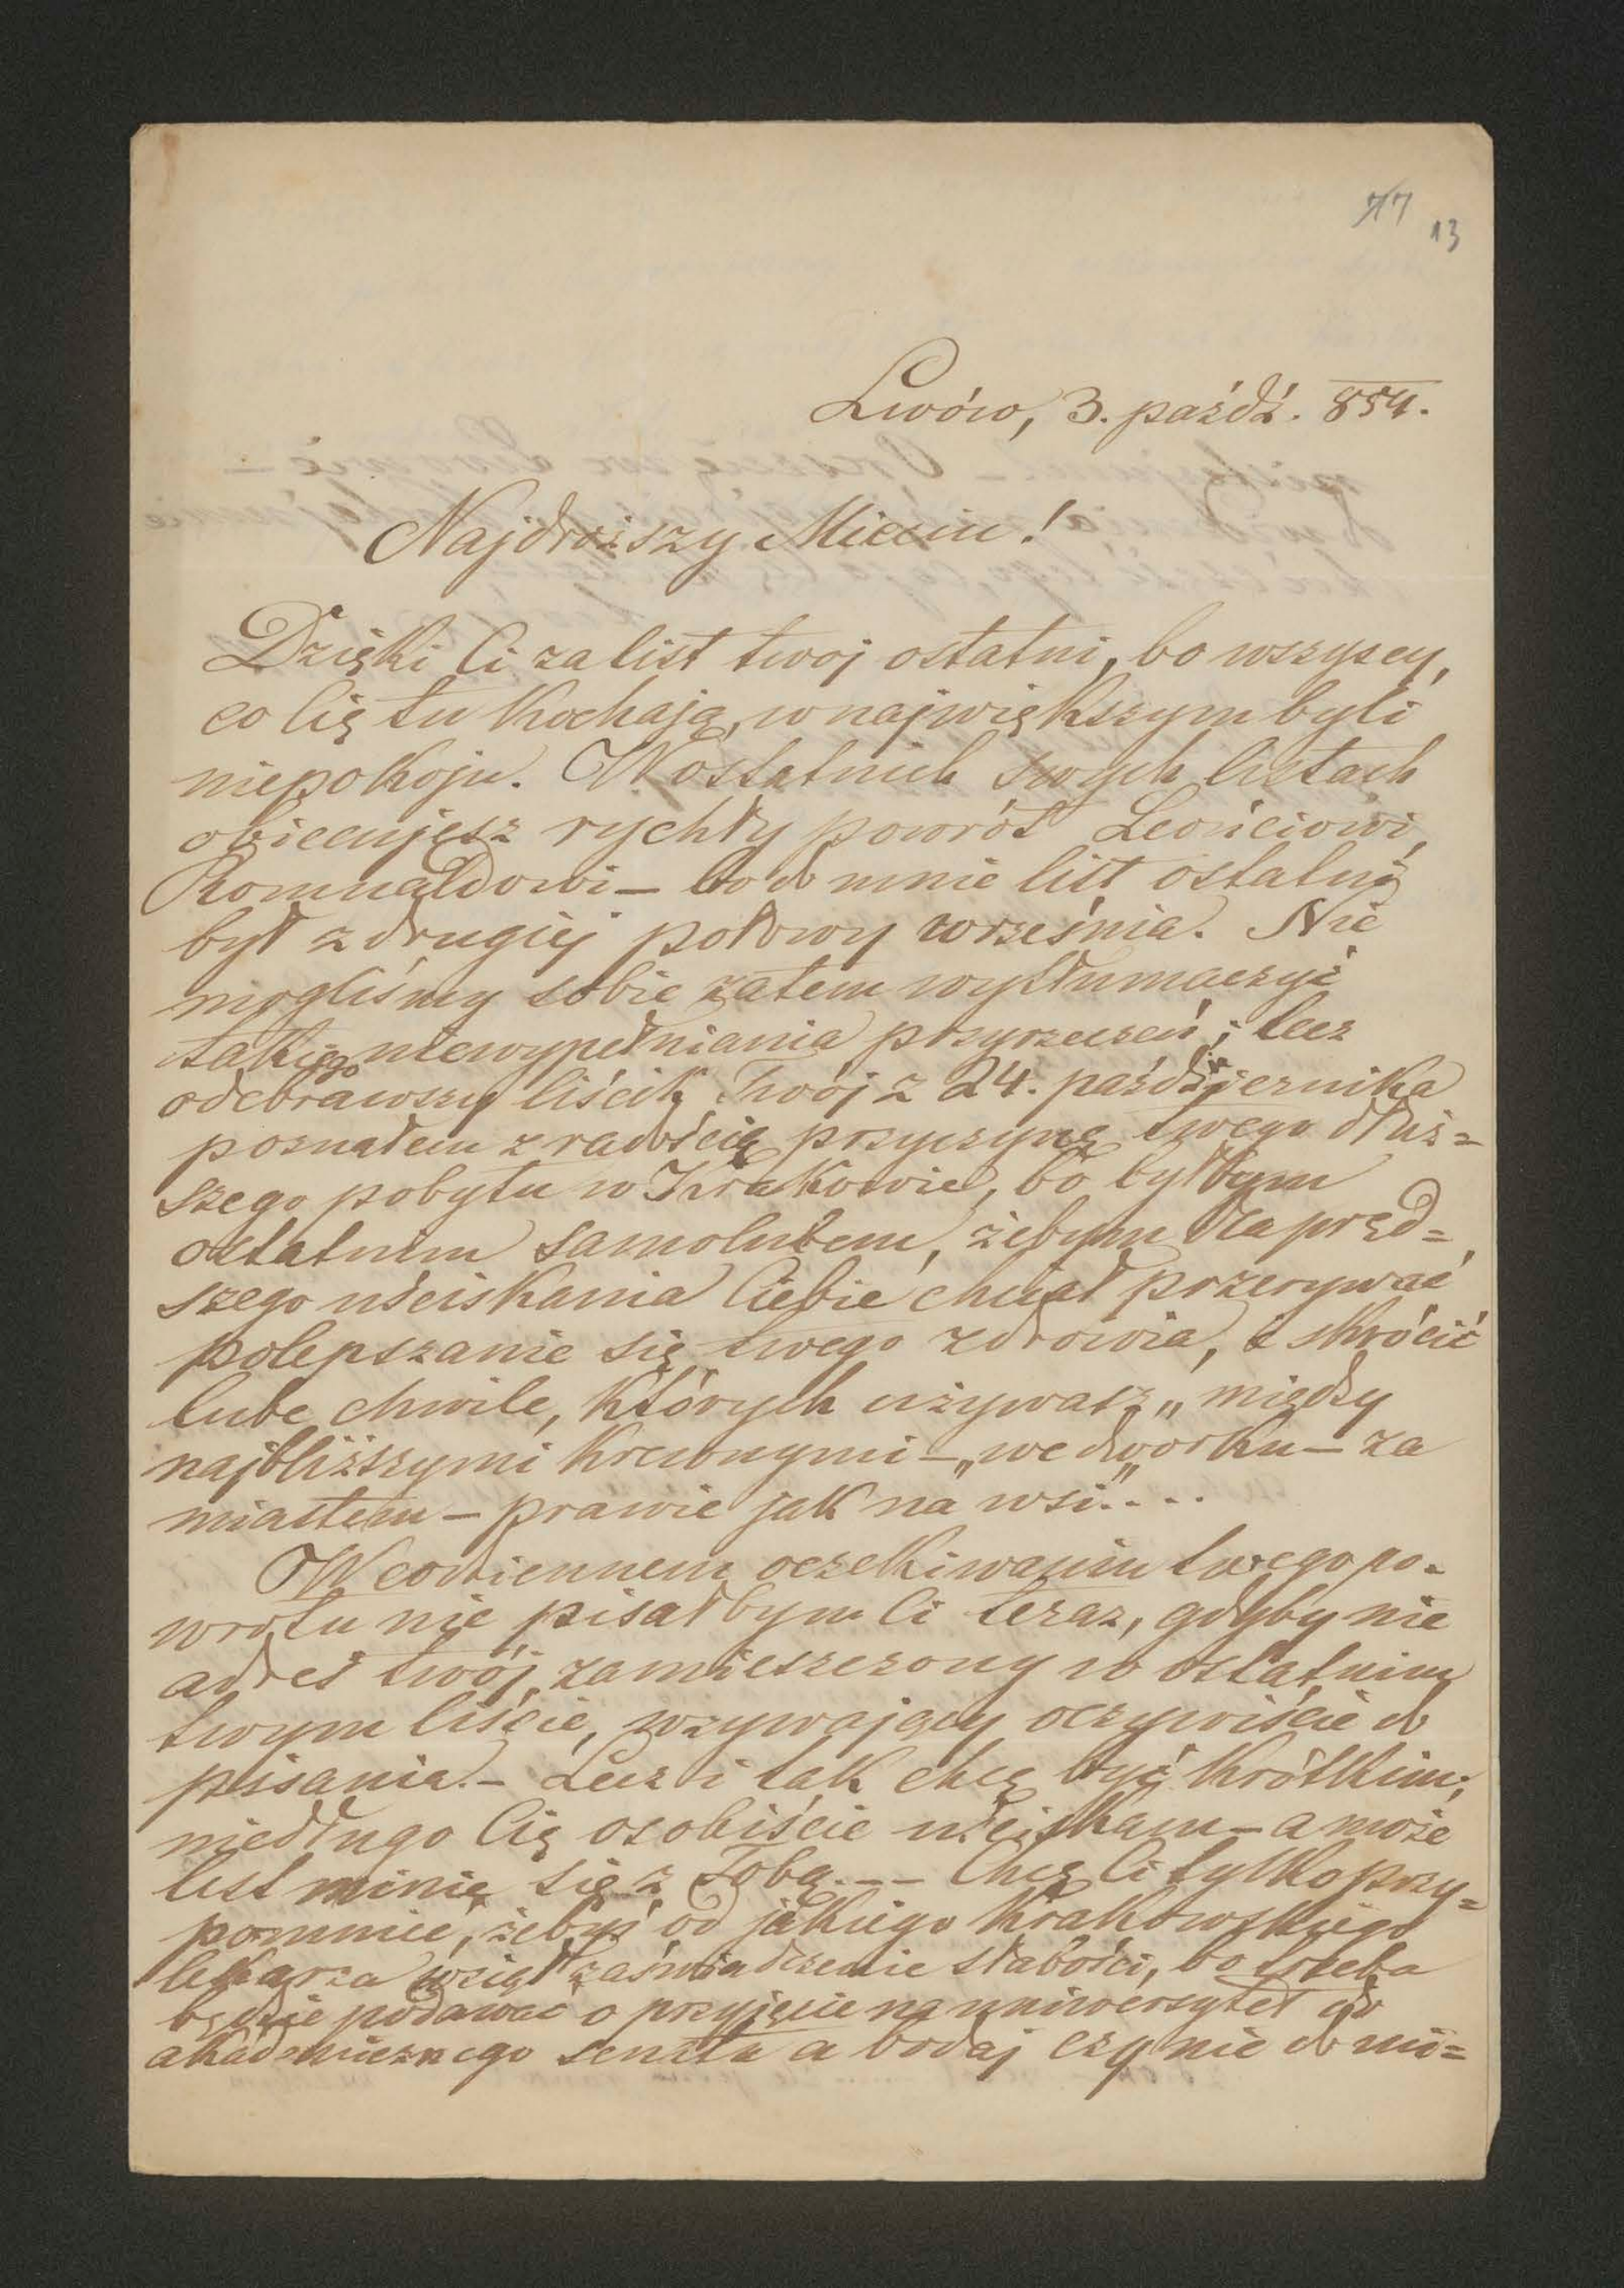 77
13
Lwów, 3. paźdź. 854.
Najdroższy Mieciu!
Dzięki Ci za list twoj ostatni, bo wszyscy,
co Cię tu kochają, w największym byli
niepokoju. W ostatnich swych listach
obiecujesz rychły powrót Leońciowi,
Romualdowi – bo do mnie list ostatni
był z drugiej połowy września. Nie
mogliśmy sobie zatem wytłumaczyć
takiego niewypełniania przyrzeczeń; lecz
odebrawszy liścik Twój z 24. października
poznałem z radością przyczynę twego dłuż=
szego pobytu w Krakowie, bo byłbym
ostatnim samolubem, żebym dla pręd=
szego uściskania Ciebie chciał przerywać
polepszanie się twego zdrowia, i skrócić
lube chwile, których używasz „między
najbliższymi krewnymi – „we dworku – za
miastem – prawie jak na wsi....
W codziennem oczekiwaniu twego po-
wrotu nie pisałbym Ci teraz, gdyby nie
adres twój, zamieszczony w ostatnim
twym liście, wzywający oczywiście do
pisania. – Lecz i tak chcę być krótkim;
niedługo Cię osobiście uściskam – a może
list minie się z Tobą. – – Chcę Ci tylko przy=
pomnieć, żebyś od jakiego krakowskiego
lekarza wziął zaświadczenie słabości, bo trzeba
będzie podawać o przyjęcie na uniwersytet do
akademicznego senatu a bodaj czy nie do mi=